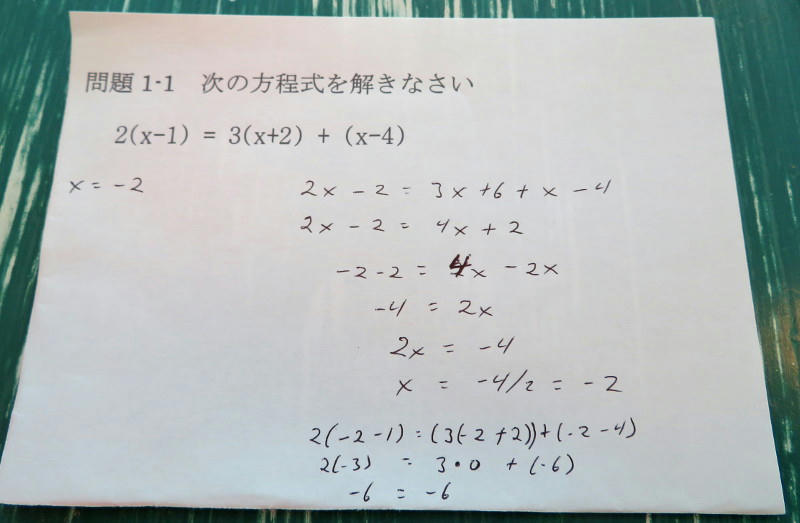 問題 1-1　次の方程式を解きなさい
2(x-1) = 3(x+2) + (x-4)
x = -2
2x - 2 = 3x + 6 + x - 4
2x - 2 = 4x + 2
-2 - 2 = 4x - 2x
-4 = 2x
2x = -4
x = -4/2 = -2
2(-2-1) = (3(-2+2))+(-2-4)
2(-3) = 3•0 + (-6)
-6 = -6